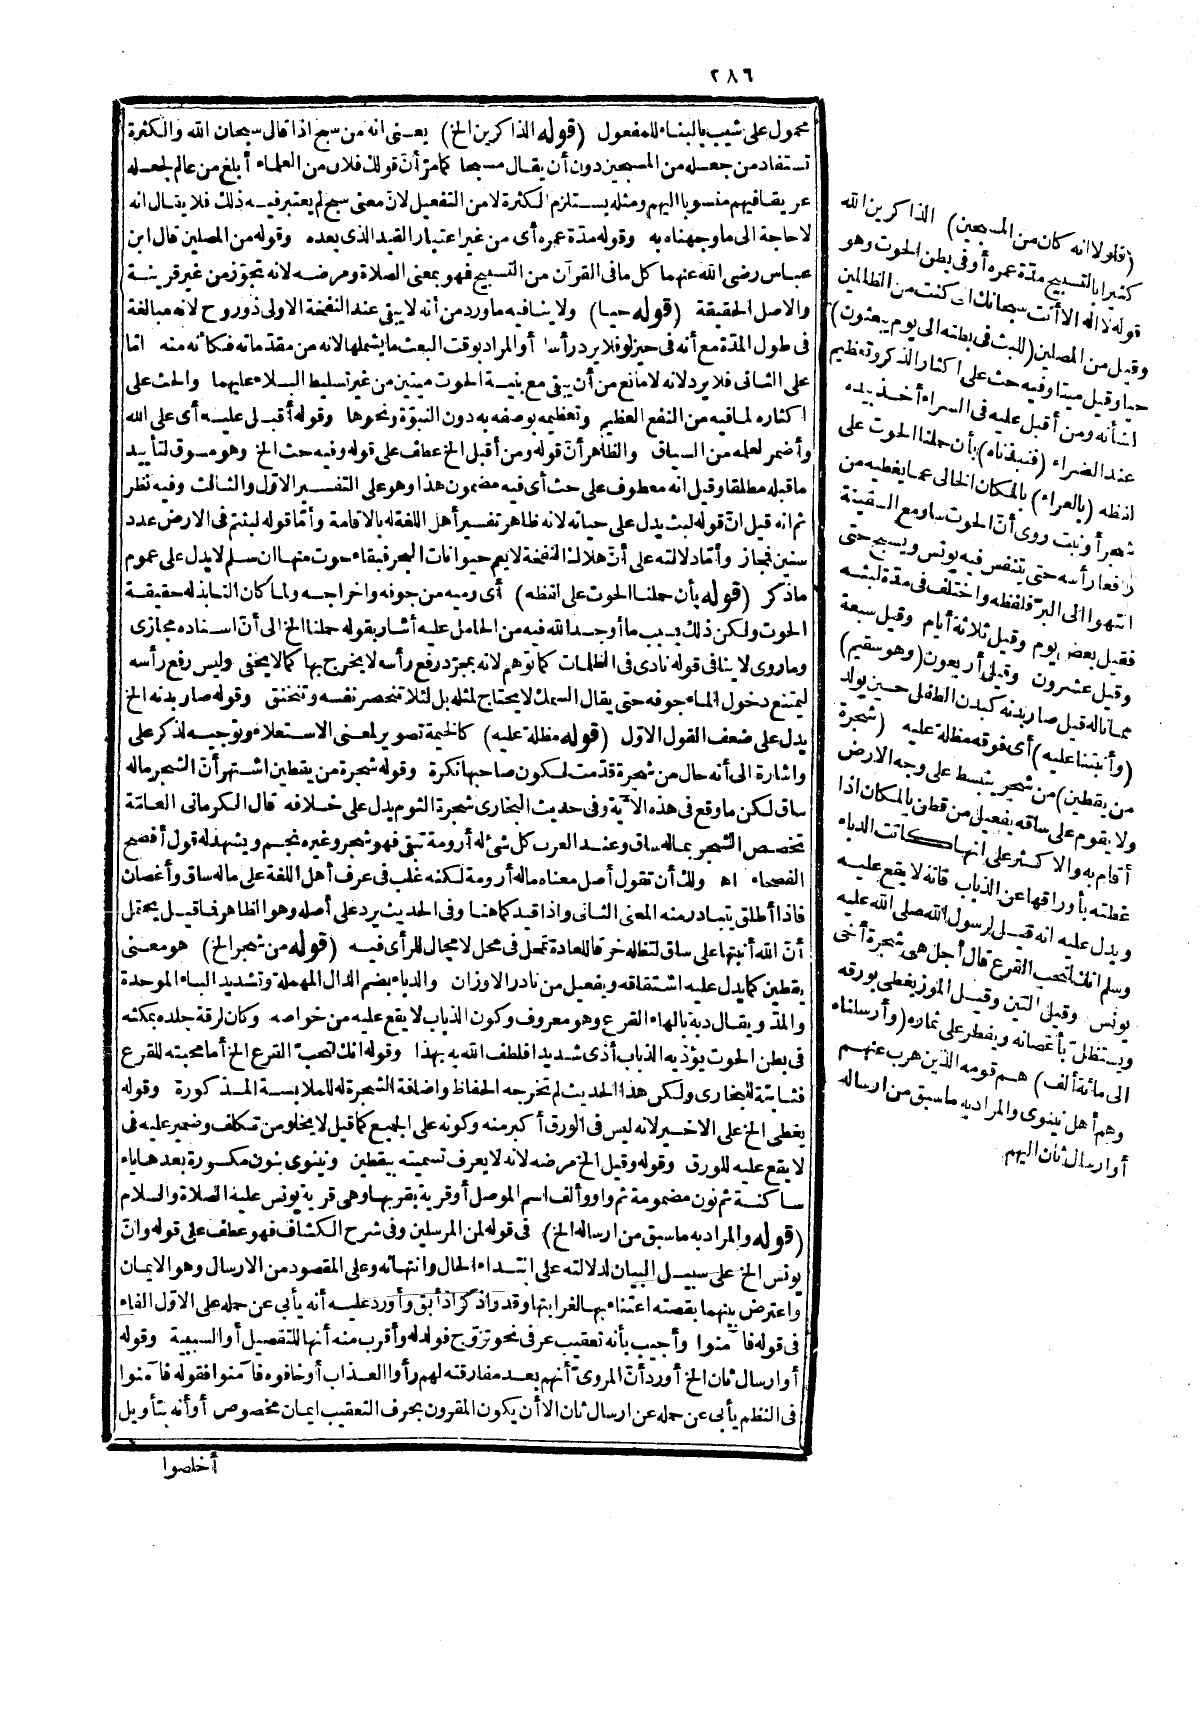 ٢٨٦
محمول على شيب بالبناء للمفعول (قوله الذاكرين الخ) يعنى انه من سبح اذا قال سبحان الله والكثرة
تستفاد من جعله من المسبحين دون أن يقال مسبحا كما مرّ أنّ قولك فلان من العلماء أبلغ من عالم لجعله
عريقا فيهم منسوبا اليهم ومثله يستلزم الكثرة لا من التفعيل لانّ معنى سبح لم يعتبر فيه ذلك فلا يقال انه
لا حاجة الى ما وجهناه به وقوله مدّة عمره أى من غير اعتبار القيد الذى بعده وقوله من المصلين قال ابن
عباس رضى الله عنهما كل ما فى القرآن من التسبيح فهو بمعنى الصلاة ومرضه لانه تجوّز من غير قرينة
والاصل الحقيقة (قوله حيا) ولا ينافيه ما ورد من أنه لا يبقى عند النفخة الاولى ذو روح لانه مبالغة
فى طول المدّة مع أنه فى حيز لو فلا يرد رأسا أو المراد بوقت البعث ما يشملها لانه من مقدّماته فكأنه منه امّا
على الثانى فلا يرد لانه لا مانع من أن يبقى مع بنية الحوت ميتين من غير تسليط البلاء عليهما والحث على
اكثاره لما فيه من النفع العظيم وتعظيمه بوصفه به دون النبوّة ونحوها وقوله أقبل عليه أى على الله
وأضمر لعلمه من السياق والظاهر أنّ قوله ومن أقبل الخ عطف على قوله وفيه حث الخ وهو مسوق لتأييد
ما قبله مطلقا وقيل انه معطوف على حث أى فيه مضمون هذا وهو على التفسير الاوّل والثالث وفيه نظر
ثم انه قيل انّ قوله لبث يدل على حياته لانه ظاهر تفسير أهل اللغة له بالاقامة وأمّا قوله لبثتم فى الارض عدد
سنين فمجاز وأمّا دلالته على أنّ هلاك النفخة لا يعم حيوانات البحر فبقاء حوت منها ان سلم لا يدل على عموم
ما ذكر (قوله بأن حملنا الحوت على لفظه) أى رميه من جوفه واخراجه ولما كان النابذ له حقيقة
الحوت ولكن ذلك بسبب ما أوجد الله فيه من الحامل عليه أشار بقوله حملنا الخ الى أنّ اسناده مجازى
وما روى لا ينافى قوله نادى فى الظلمات كما توهم لانه بمجرّد رفع رأسه لا يخرج بها كما لا يخفى وليس رفع رأسه
ليمتنع دخول الماء جوفه حتى يقال السمك لا يحتاج لمثله بل لئلا تنحصر نفسه وتختنق وقوله صار بدنه الخ
يدل على ضعف القول الاوّل (قوله مظلة عليه) كالخيمة تصوير لمعنى الاستعلاء وتوجيه لذكر على
واشارة الى أنه حال من شجرة قدّمت لكون صاحبها نكرة وقوله شجرة من يقطين اشتهر أنّ الشجر ماله
ساق لكن ما وقع فى هذه الآية وفى حديث البخارى شجرة الثوم يدل على خلافه قال الكرمانى العامّة
تخصص الشجر بماله ساق وعند العرب كل شئ له أرومة تبقى فهو شجر وغيره نجم ويشهد له قول أفصح
الفصحاء اه ولك أن تقول أصل معناه ماله أرومة لكنه غلب فى عرف أهل اللغة على ماله ساق وأغصان
فاذا أطلق يتبادر منه المعنى الثانى واذا قيد كما هنا وفى الحديث يرد على أصله وهو الظاهر فما قيل يحتمل
أنّ الله أنبتها على ساق لتظله خرقا للعادة تمحل فى محل لا مجال للرأى فيه (قوله من شجر الخ) هو معنى
يقطين كما يدل عليه اشتقاقه ويفعيل من نادر الاوزان والدباء بضم الدال المهملة وتشديد الباء الموحدة
والمدّ ويقال دبة بالهاء القرع وهو معروف وكون الذباب لا يقع عليه من خواصه وكان لرقة جلده بمكثه
فى بطن الحوت يؤذيه الذباب أذى شديدا فلطف الله به بهذا وقوله انك لتحب القرع الخ أما محبته للقرع
فثابتة للبخارى ولكن هذا الحديث لم تخرجه الحفاظ واضافة الشجرة له للملابسة المذكورة وقوله
يغطى الخ على الاخير لانه ليس فى الورق أكبر منه وكونه على الجميع كما قيل لا يخلو من تكلف وضمير عليه فى
لا يقع عليه للورق وقوله وقيل الخ مرضه لانه لا يعرف تسميته بيقطين ونينوى بنون مكسورة بعدها ياء
ساكنة ثم نون مضمومة ثم واو وألف اسم الموصل أو قرية بقربها وهى قرية يونس عليه الصلاة والسلام
(قوله والمراد به ما سبق من ارساله الخ) فى قوله لمن المرسلين وفى شرح الكشاف فهو عطف على قوله وانّ
يونس الخ على سبيل البيان لدلالته على ابتداء الحال وانتهائه وعلى المقصود من الارسال وهو الايمان
واعترض بينهما بقصته اعتناء بها لغرابتها وقدر اذكر اذ أبق وأورد عليه أنه يأبى عن حمله على الاوّل الفاء
فى قوله فآمنوا وأجيب بأنه تعقيب عرفى نحو تزوّج فولد له وأقرب منه أنها للتفصيل أو السببية وقوله
أو ارسال ثان الخ أورد أنّ المروىّ أنهم بعد مفارقته لهم رأوا العذاب أو خافوه فآمنوا فقوله فآمنوا
فى النظم يأبى عن حمله عن ارسال ثان الا أن يكون المقرون بحرف التعقيب ايمان مخصوص أو أنه بتأويل
أخلصوا
(فلولا انه كان من المسبحين) الذاكرين الله
كثيرا بالتسبيح مدّة عمره أو فى بطن الحوت وهو
قوله لا اله الا أنت سبحانك انى كنت من الظالمين
وقيل من المصلين (للبث فى بطنه الى يوم يبعثون)
حيا وقيل ميتا وفيه حث على اكثار الذكر وتعظيم
لشأنه ومن أقبل عليه فى السراء أخذ بيده
عند الضراء (فنبذناه) بأن حملنا الحوت على
لفظه (بالعراء) بالمكان الخالى عما يغطيه من
شجر أو نبت روى أنّ الحوت سار مع السفينة
رافعا رأسه حتى يتنفس فيه يونس ويسبح حتى
انتهوا الى البرّ فلفظه واختلف فى مدّة لبثه
فقيل بعض يوم وقيل ثلاثة أيام وقيل سبعة
وقيل عشرون وقيل أربعون (وهو سقيم)
مما ناله قيل صار بدنه كبدن الطفل حين يولد
(وأنبتنا عليه) أى فوقه مظلة عليه (شجرة
من يقطين) من شجر ينبسط على وجه الارض
ولا يقوم على ساقه يفعيل من قطن بالمكان اذا
أقام به والاكثر على انها كانت الدباء
غطته بأوراقها عن الذباب فانه لا يقع عليه
ويدل عليه انه قيل لرسول الله صلى الله عليه
وسلم انك لتحب القرع قال أجل هى شجرة أخى
يونس وقيل التين وقيل الموز يغطى بورقه
ويستظلّ بأغصانه ويفطر على ثماره (وأرسلناه
الى مائة ألف) هم قومه الذين هرب عنهم
وهم أهل نينوى والمراد به ما سبق من ارساله
أو ارسال ثان اليهم